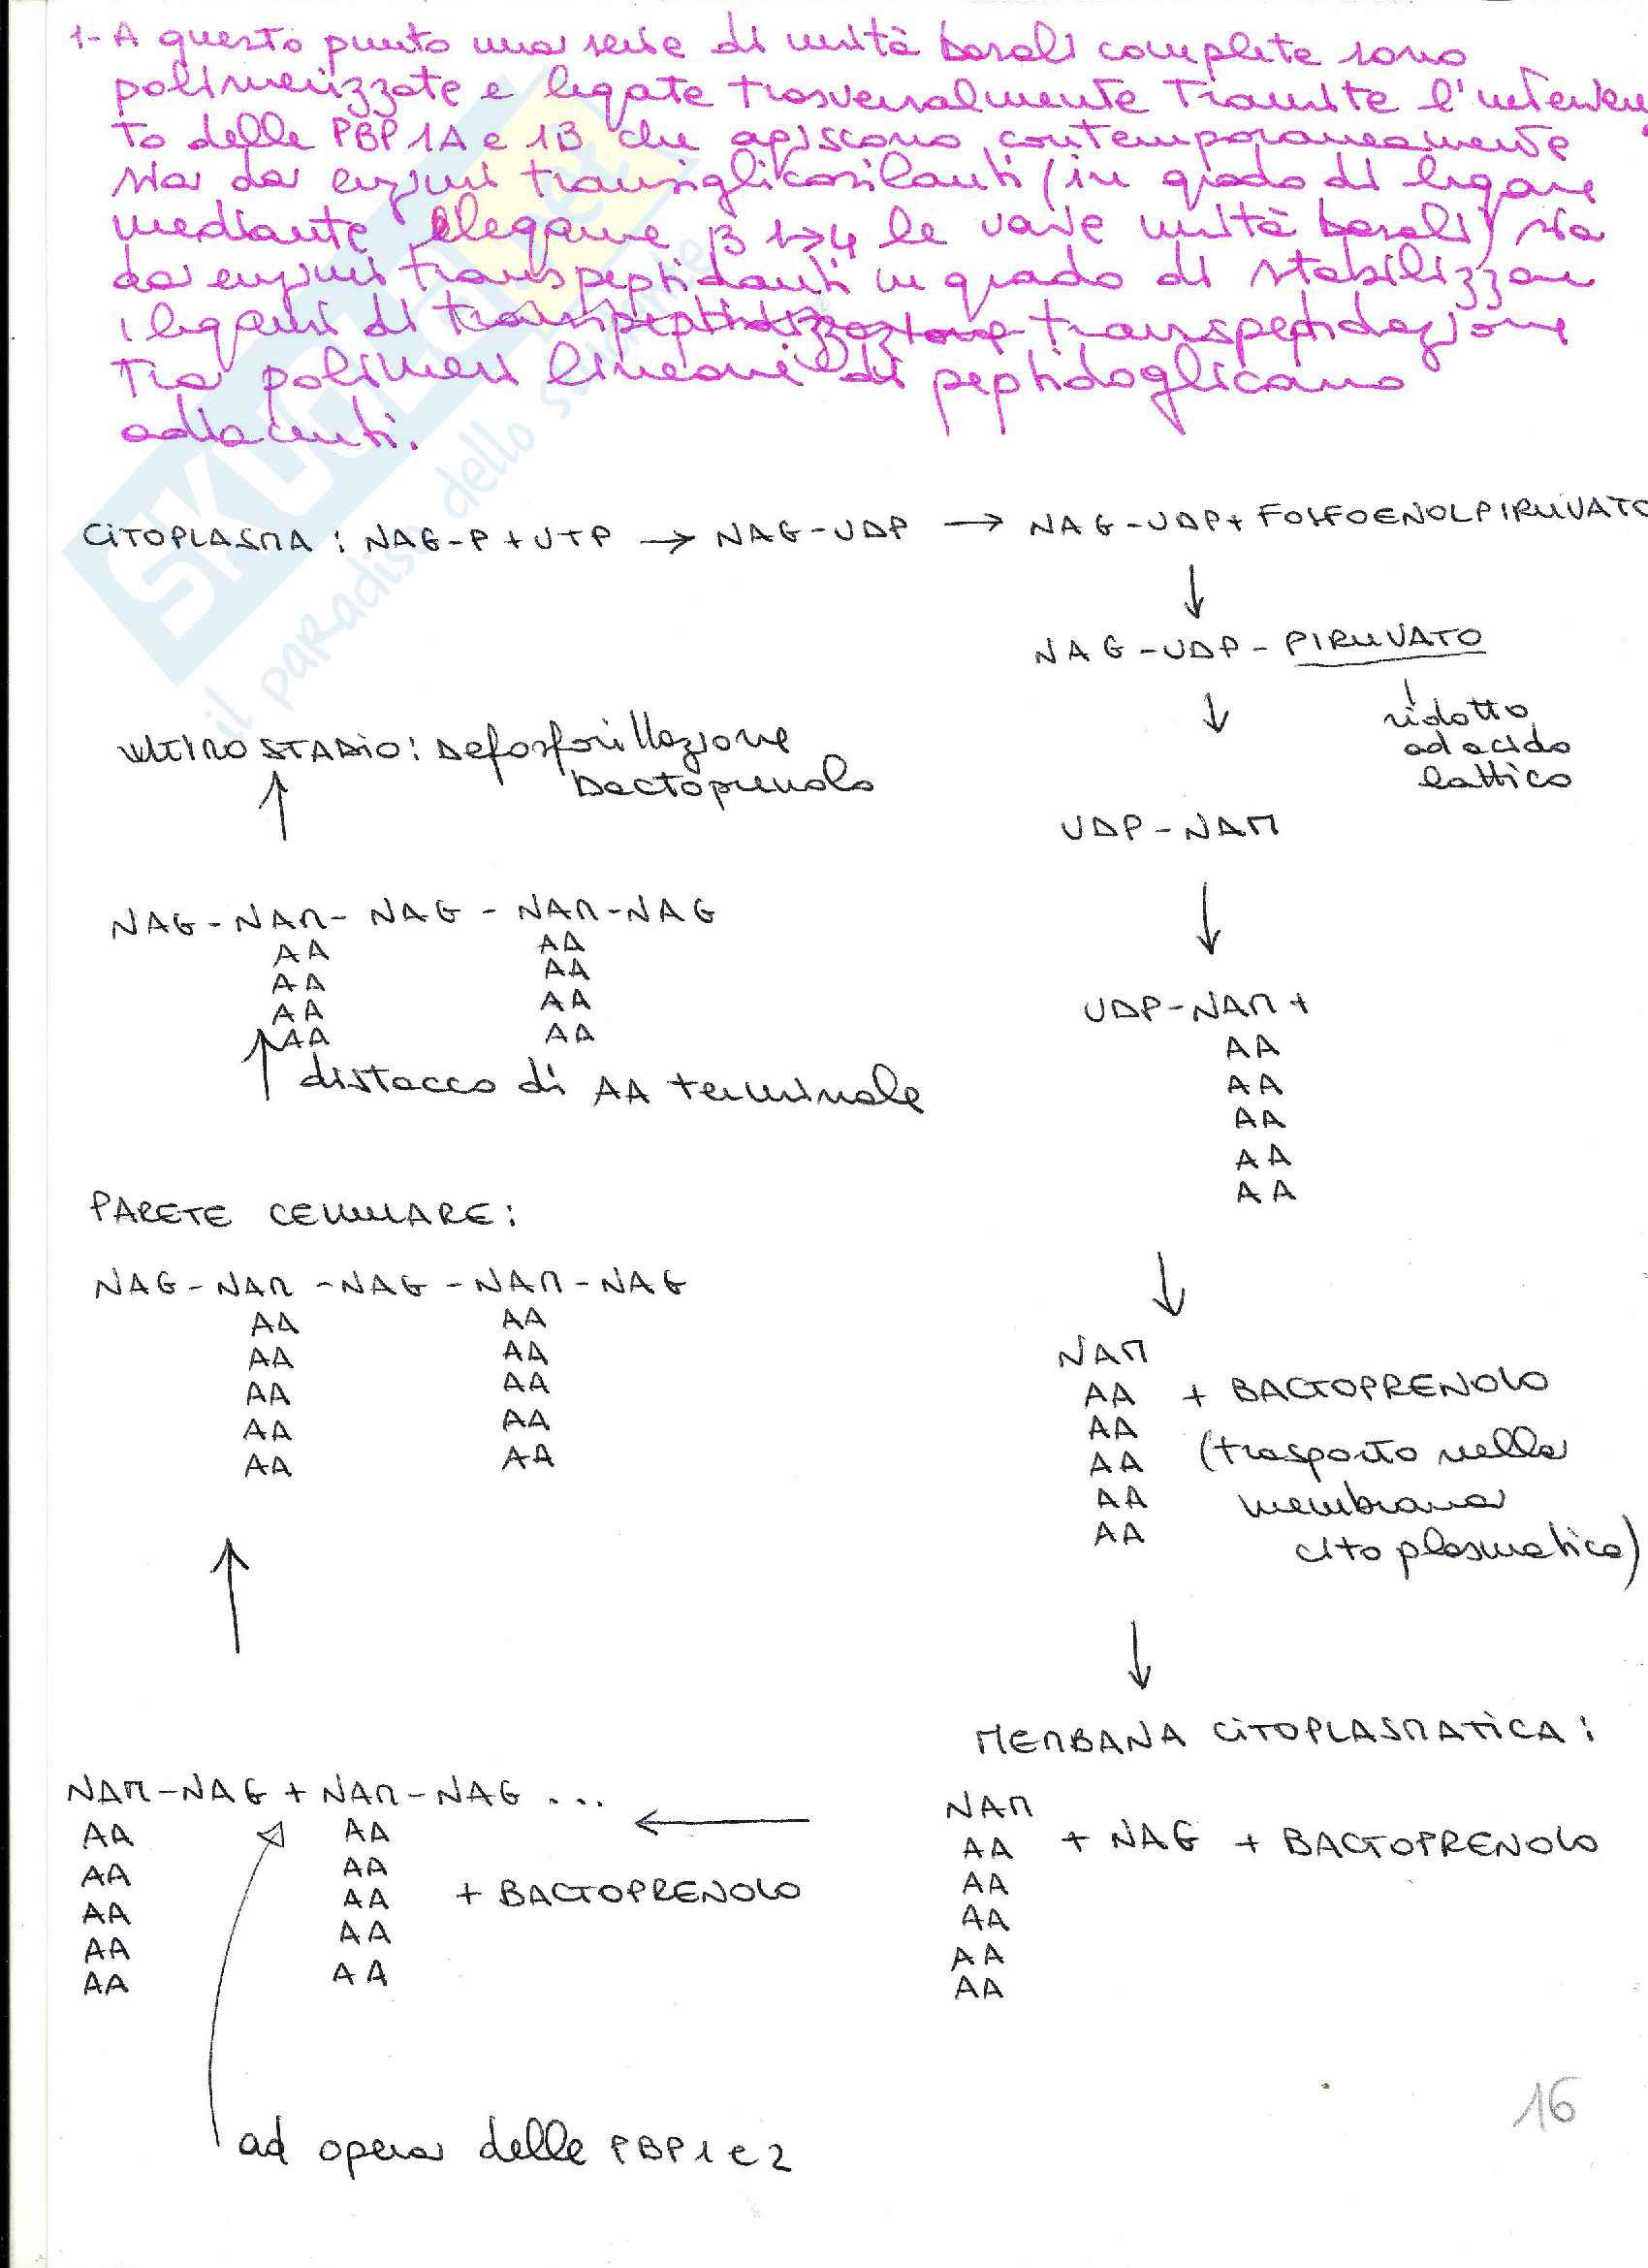 1- A questo punto una serie di unità basali complete sono
polimerizzate e legate trasversalmente tramite l'interven
to delle PBP 1A e 1B che agiscono contemporaneamente
sia da enzimi transglicosilanti (in grado di legare
mediante legame β 1→4 le varie unità basali) sia
da enzimi transpeptidanti in grado di stabilizzare
i legami di transpeptidazione
tra polimeri lineari di peptidoglicano
adiacenti.
CITOPLASMA: NAG-P + UTP → NAG-UDP → NAG-UDP + FOSFOENOLPIRUVATO
↓
NAG-UDP-PIRUVATO
↓
ridotto
ad acido
lattico
UDP-NAM
↓
UDP-NAM +
AA
AA
AA
AA
AA
↓
NAM
AA + BACTOPRENOLO
AA (trasporto nella
AA membrana
AA citoplasmatica)
AA
↓
MEMBANA CITOPLASMATICA:
NAM
AA + NAG + BACTOPRENOLO
AA
AA
AA
AA
←
NAM-NAG + NAM-NAG ...
AA AA
AA AA
AA AA + BACTOPRENOLO
AA AA
AA AA
ad opera delle PBP 1 e 2
↑
PARETE CELLULARE:
NAG-NAM-NAG-NAM-NAG
AA AA
AA AA
AA AA
AA AA
AA AA
↑ distacco di AA terminale
NAG-NAM-NAG-NAM-NAG
AA AA
AA AA
AA AA
AA AA
↑
ULTIMO STADIO: Defosforillazione
Bactoprenolo
16
SKUOLA.net
il paradiso dello studente